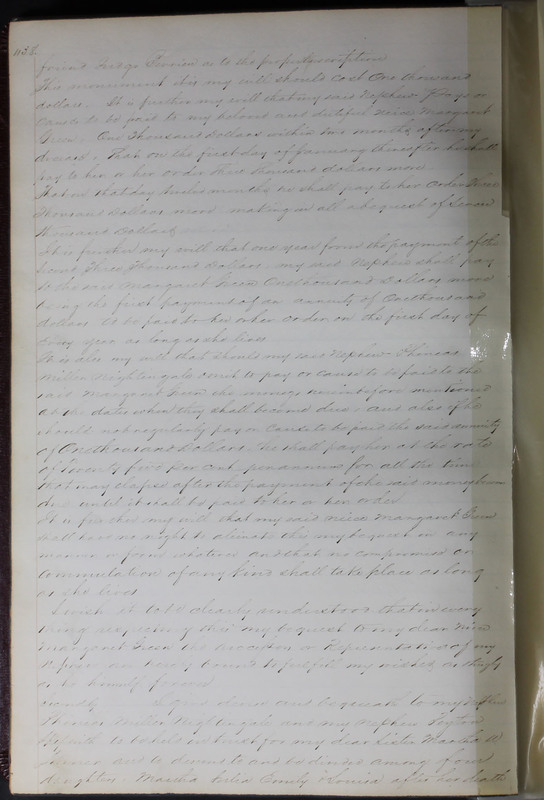 friend Judge as to the proper inscription
This monument it is my will should cost One thousand
dollars. It is further my will that my said Nephew Pay or
cause to be paid to my beloved and dutiful niece Margaret
Green, One Thousand Dollars within two months after my
decease. That on the first day of January thereafter he shall
pay to her or her order three thousand dollars more
That on that day twelve months he shall pay to her order three
thousand Dollars more making in all a bequest of Seven
thousand Dollars
It is further my will that one year from the payment of the
second Three Thousand dollars my said Nephew shall pay
to the said Margaret Green One thousand Dollars more
being the first payment of an annuity of One thousand
dollars to be paid to her or her order on the first day of
every year as long as she lives
It is also my will that should my said Nephew Phineas
Miller Nightingale omit to pay or cause to be paid to the
said Margaret Green the moneys herein before mentioned
at the dates when they shall become due; and also if he
should not regularly pay or cause to be paid the said annuity
of One thousand Dollars he shall pay her at the rate
of twenty five per cent per annum for all the time
that may elapse after the payment of the said money
due until it shall be paid to her or her order
It is further my will that my said niece Margaret Green
shall have no right to alienate this my bequest in any
manner or form whatever and that no compromise or
commutation of any kind shall take place as long
as she lives
I wish it to be clearly understood that in every
thing respecting this my bequest to my dear niece
Margaret Green the executors or Representatives of my
Nephew are hereby bound to fulfill my wishes as
as he himself
Secondly I give devise and bequeath to my Nephew
Phineas Miller Nightingale and my Nephew Peyton
to be held in trust for my dear Sister Martha
and to devise to and be divided among of her
daughters Martha Emily Louisa after her death